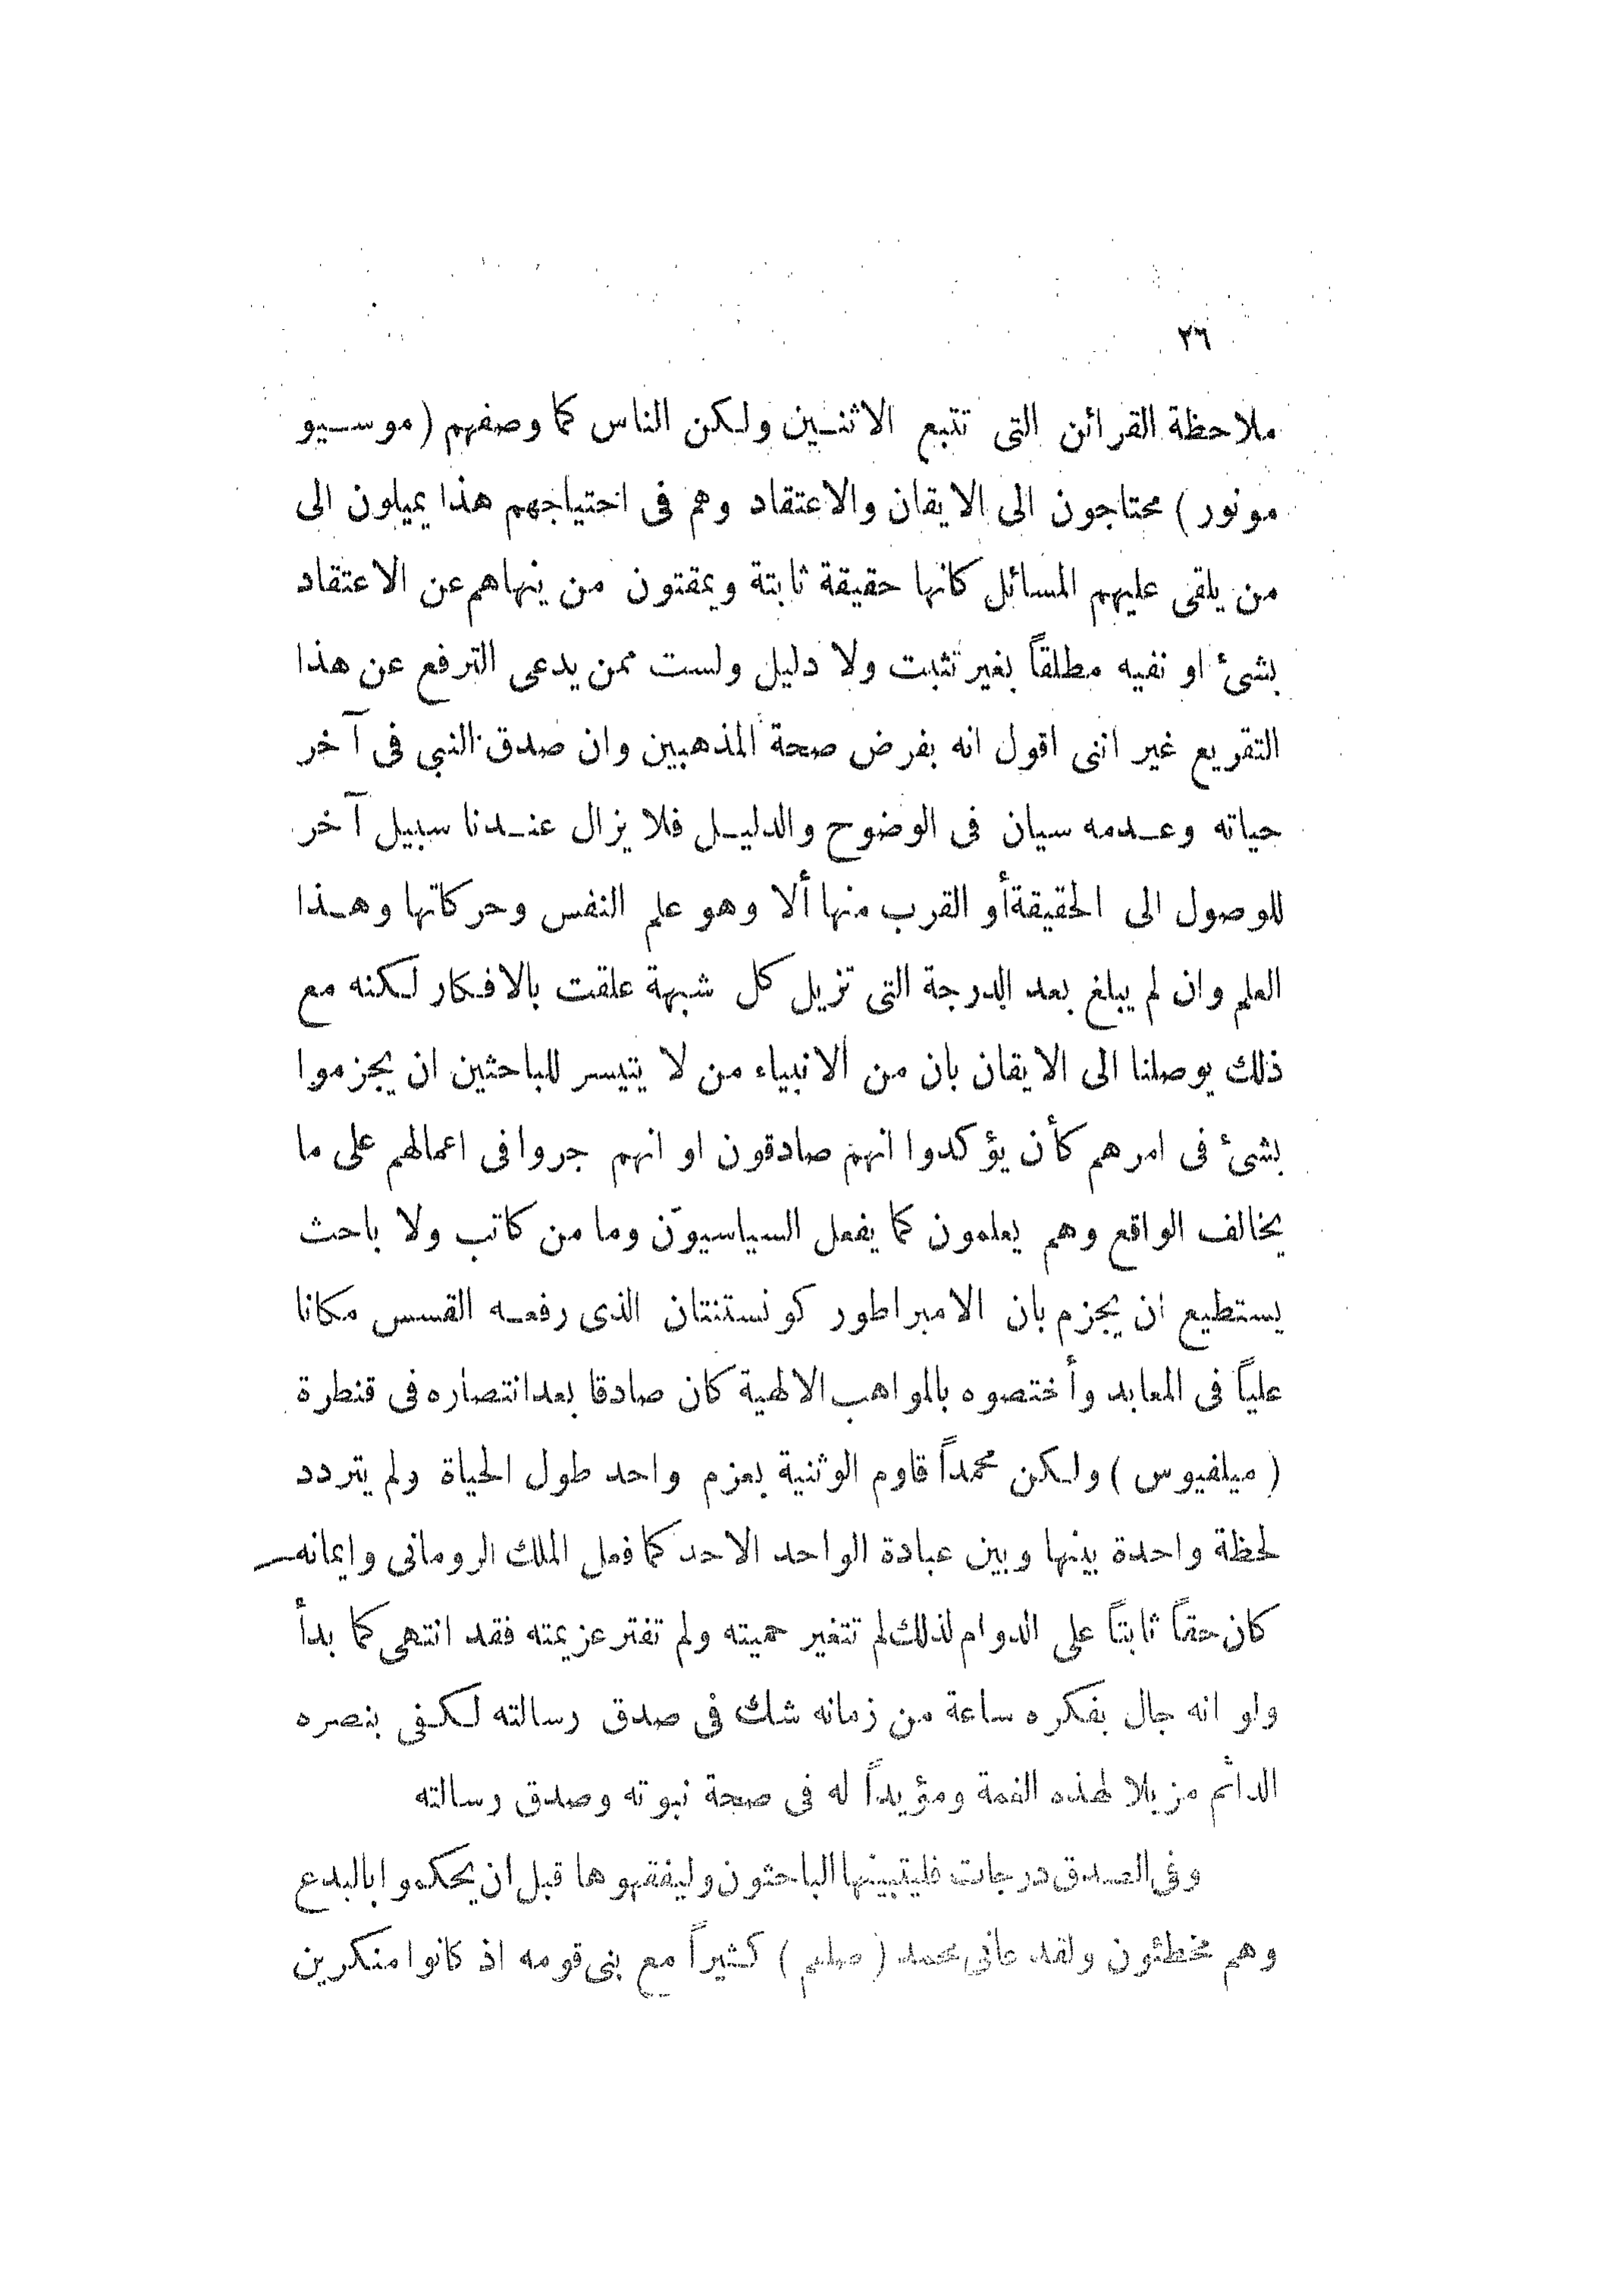 ٢٦
ملاحظة القرائن التى تتبع الاثنين ولكن الناس كما وصفهم (موسيو
مونور) محتاجون الى الايقان والاعتقاد وهم فى احتياجهم هذا يميلون الى
من يلقى عليهم المسائل كانها حقيقة ثابتة ويمقتون من ينهاهم عن الاعتقاد
بشئ او نفيه مطلقاً بغير تثبت ولا دليل ولست ممن يدعى الترفع عن هذا
التقريع غير اننى اقول انه بفرض صحة المذهبين وان صدق النبي فى آخر
حياته وعدمه سيان فى الوضوح والدليل فلا يزال عندنا سبيل آخر
للوصول الى الحقيقة أو القرب منها ألا وهو علم النفس وحركاتها وهذا
العلم وان لم يبلغ بعد الدرجة التى تزيل كل شبهة علقت بالافكار لكنه مع
ذلك يوصلنا الى الايقان بان من الانبياء من لا يتيسر للباحثين ان يجزموا
بشئ فى امرهم كأن يؤكدوا انهم صادقون او انهم جروا فى اعمالهم على ما
يخالف الواقع وهم يعلمون كما يفعل السياسيون وما من كاتب ولا باحث
يستطيع ان يجزم بان الامبراطور كونستنتان الذى رفعه القسس مكانا
علياً فى المعابد وأختصوه بالمواهب الالهية كان صادقا بعد انتصاره فى قنطرة
(ميلفيوس) ولكن محمداً قاوم الوثنية بعزم واحد طول الحياة ولم يتردد
لحظة واحدة بينها وبين عبادة الواحد الاحد كما فعل الملك الرومانى وايمانه
كان حقاً ثابتاً على الدوام لذلك لم تتغير حميته ولم تفتر عزيمته فقد انتهى كما بدأ
ولو انه جال بفكره ساعة من زمانه شك فى صدق رسالته لكفى بنصره
الدائم مزيلا لهذه الغمة ومؤيداً له فى صحة نبوته وصدق رسالته
وفى الصدق درجات فليتبينها الباحثون وليفقهوها قبل ان يحكموا بالبدع
وهم مخطئون ولقد عانى محمد (صلعم) كثيراً مع بنى قومه اذ كانوا منكرين